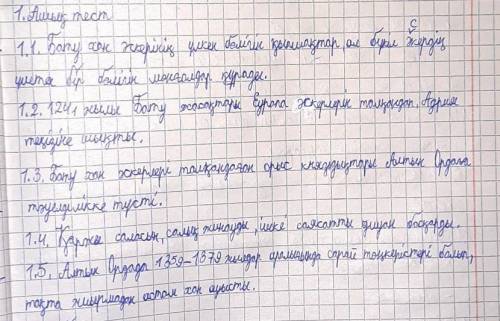 1. Ашық тест
1.1. Бату хан әскерінің үлкен бөлігін қыпшақтар, ал бүкіл әскердің
үштен бір бөлігін моңғолдар құрады.
1.2. 1241 жылы Бату жасақтары Еуропа әскерлерін талқандап, Адрия
теңізіне шықты.
1.3. Бату хан әскерлері талқандаған орыс княздықтары Алтын Ордаға
тәуелділікке түсті.
1.4. Қаржы саласын, салық жинауды, ішкі саясатты диуан басқарды.
1.5. Алтын Ордада 1359–1379 жылдар аралығында сарай төңкерістері болып,
тақта жиырмадан астам хан ауысты.